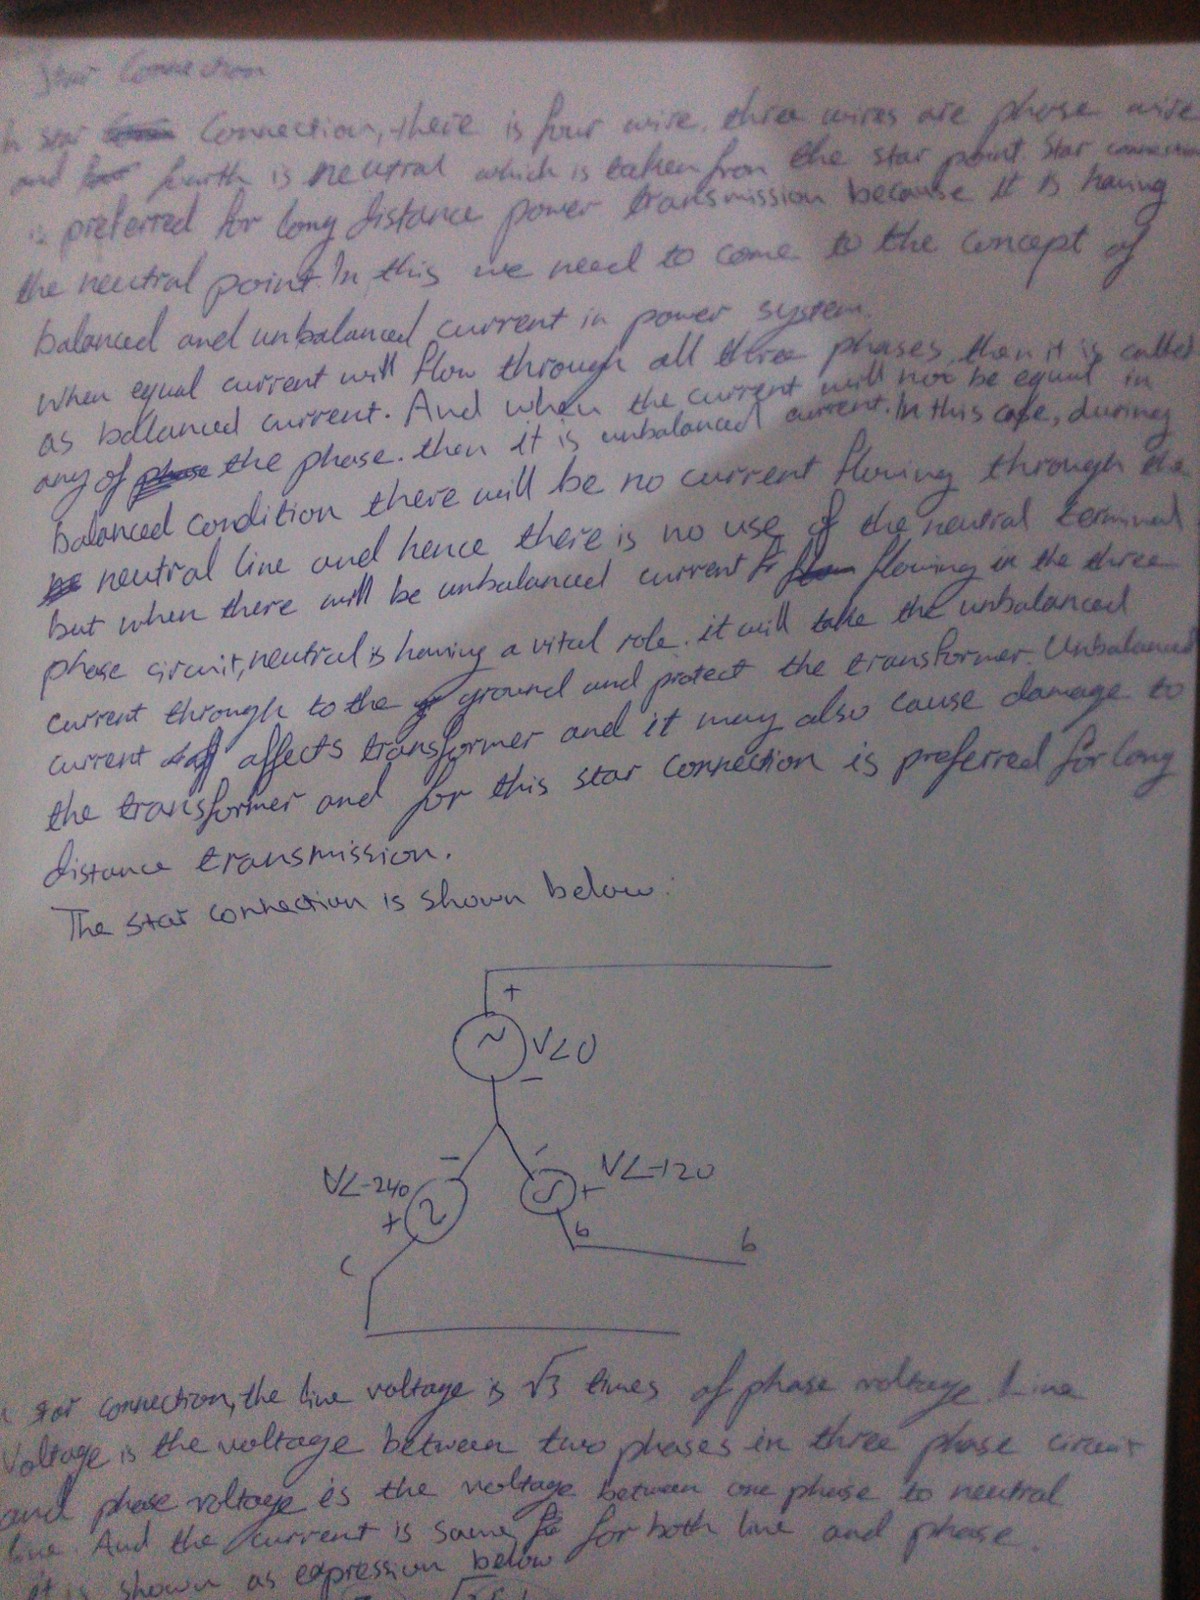 Star Connection
In star Connection, there is four wire. three wires are phase wire
and fourth is neutral which is taken from the star point. Star connection
is preferred for long distance power transmission because it is having
the neutral point. In this we need to come to the concept of
balanced and unbalanced current in power system.
When equal current will flow through all three phases, then it is called
as balanced current. And when the current will not be equal in
any of the phase. then it is unbalanced current. In this case, during
balanced condition there will be no current flowing through the
neutral line and hence there is no use of the neutral terminal
but when there will be unbalanced current flowing in the three
phase circuit, neutral is having a vital role. it will take the unbalanced
current through to the ground and protect the transformer. Unbalanced
current affects transformer and it may also cause damage to
the transformer and for this star connection is preferred for long
distance transmission.
The star connection is shown below:
+
~ V∠0
−
− −
V∠-240 ~ ~ V∠-120
+ +
c b b
star connection, the line voltage is √3 times of phase voltage. Line
Voltage is the voltage between two phases in three phase circuit
and phase voltage is the voltage between one phase to neutral
line. And the current is same for both line and phase.
It is shown as expression below